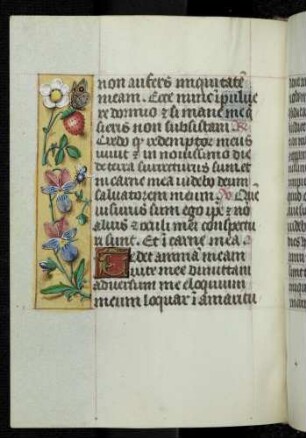 non aufers iniquitatē
meam. Ecce nunc ī puluē
re dormio & si mane me q̄
sieris non subsistam. R
Credo q̢ redemptor meus
viuit et in nouissimo die
de terra surrecturus sum et
in carne mea videbo deum
saluatorem meum. V Quē
visurus sum ego ip̄e & nō
alius & oculi mei conspectu
ri sunt. Et ī carne mea.
Tedet animā meam
vite mee dimittam
aduersum me eloquium
meum loquar ī amaritu